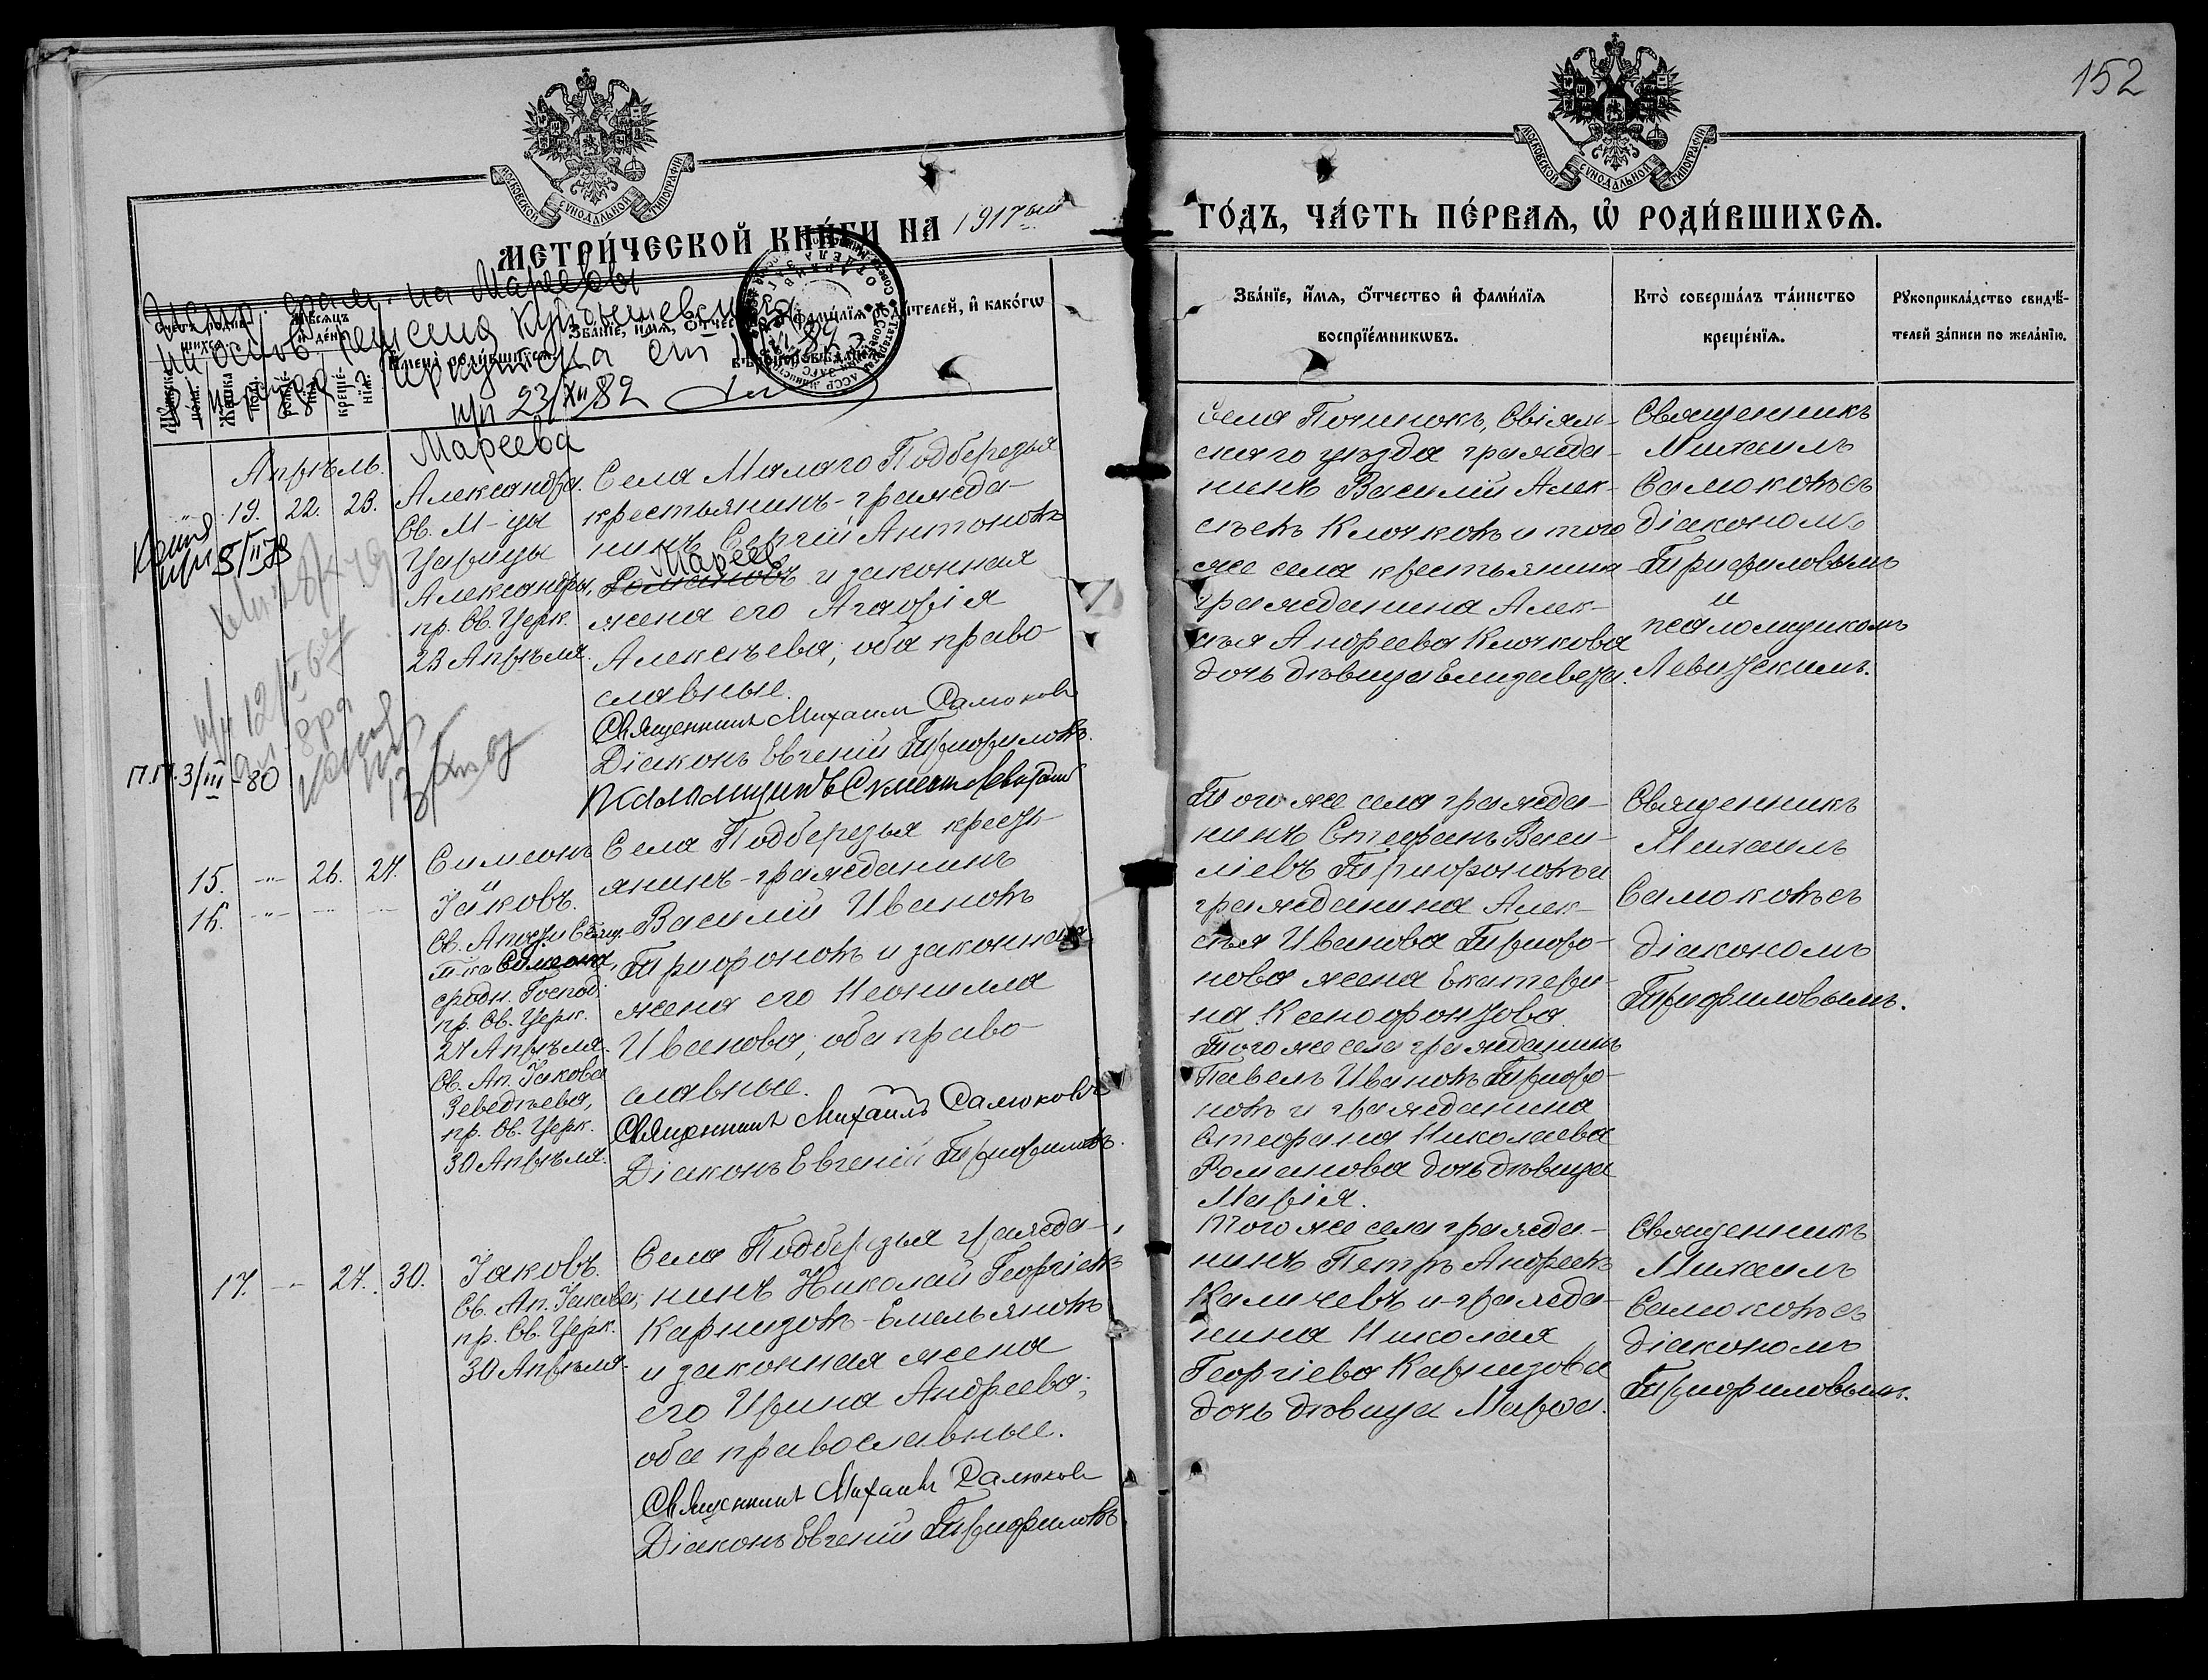 152
МОСКОВСКОЙ СѴНОДАЛЬНОЙ ТИПОГРАФІИ
МОСКОВСКОЙ СѴНОДАЛЬНОЙ ТИПОГРАФІИ
МЕТРИ́ЧЕСКОЙ КНИ́ГИ НА 1917ый
ГО́ДЪ, ЧА́СТЬ ПЕ́РВАѦ, Ѡ҆ РОДИ́ВШИХСѦ.
на Мареевы
на основ. решения Куйбышевского
нарсуда от
и/п 23/XII 82
Мареева
Зва́нїе, и҆́мѧ, ѻ҆́тчество и҆ фамѝлїѧ роди́телей, и҆ како́гѡ
вѣроисповѣда́нїѧ
И҆мена̀ роди́вшихсѧ.
Зва́нїе, и҆́мѧ, ѻ҆́тчество и҆ фамѝлїѧ
воспрїе́мникѡвъ.
Кто̀ соверша́лъ та́инство
креще́нїѧ.
Рꙋкоприкла́дство свидѣ́-
телей за́писи по жела́нїю.
Апрѣль.
-"- 19. 22. 23.
Александра.
Св. М-цы
Царицы
Александры,
пр. Св. Церк.
23 Апрѣля.
Села Малаго Подберезья
крестьянинъ-гражда-
нинъ Сергій Антоновъ
Мареев
Романовъ и законная
жена его Агафія
Алексѣева; оба право-
славные.
Священникъ Михаилъ Самоковъ
Діаконъ Евгеній Трифиловъ.
Псаломщикъ
Села Починокъ, Свіяж-
скаго уѣзда гражда-
нинъ Василій Алек-
сѣевъ Клочковъ и того
же села крестьянина-
гражданина Алек-
сѣя Андреева Клочкова
дочь дѣвица Елизавета.
Священникъ
Михаилъ
Самоковъ съ
діакономъ
Трифиловымъ
и
псаломщикомъ
Левитскимъ.
Копия
и/п 5/II 79
и/п 12/II 67
П.П. 3/III-80
15. -"- 26. 27.
16. -"- -"- -"-
Симеонъ
и
Іаковъ.
Св. Апост. и Свящ.
м-ка Симеона,
сродн. Господ.
пр. Св. Церк.
27 Апрѣля.
Св. Ап. Іакова
Зеведѣева,
пр. Св. Церк.
30 Апрѣля.
Села Подберезья кресть-
янинъ-гражданинъ
Василій Ивановъ
Трифоновъ и законная
жена его Неонилла
Иванова; оба право-
славные.
Священникъ Михаилъ Самоковъ
Діаконъ Евгеній Трифиловъ.
Того же села гражда-
нинъ Стефанъ Васи-
ліевъ Трифоновъ и
гражданина Алек-
сѣя Иванова Трифо-
нова жена Екатери-
на Ксенофонтова.
Того же села гражданинъ
Павелъ Ивановъ Трифо-
новъ и гражданина
Стефана Николаева
Романова дочь дѣвица
Марія.
Священникъ
Михаилъ
Самоковъ съ
діакономъ
Трифиловымъ.
17. -"- 27. 30.
Іаковъ.
Св. Ап. Іакова,
пр. Св. Церк.
30 Апрѣля.
Села Подберезья гражда-
нинъ Николай Георгіевъ
Карнизовъ-Емельяновъ
и законная жена
его Ирина Андреева;
оба православные.
Священникъ Михаилъ Самоковъ
Діаконъ Евгеній Трифиловъ
Того же села гражда-
нинъ Петръ Андреевъ
Каличевъ и гражда-
нина Николая
Георгіева Карнизова
дочь дѣвица Марѳа.
Священникъ
Михаилъ
Самоковъ съ
діакономъ
Трифиловымъ.